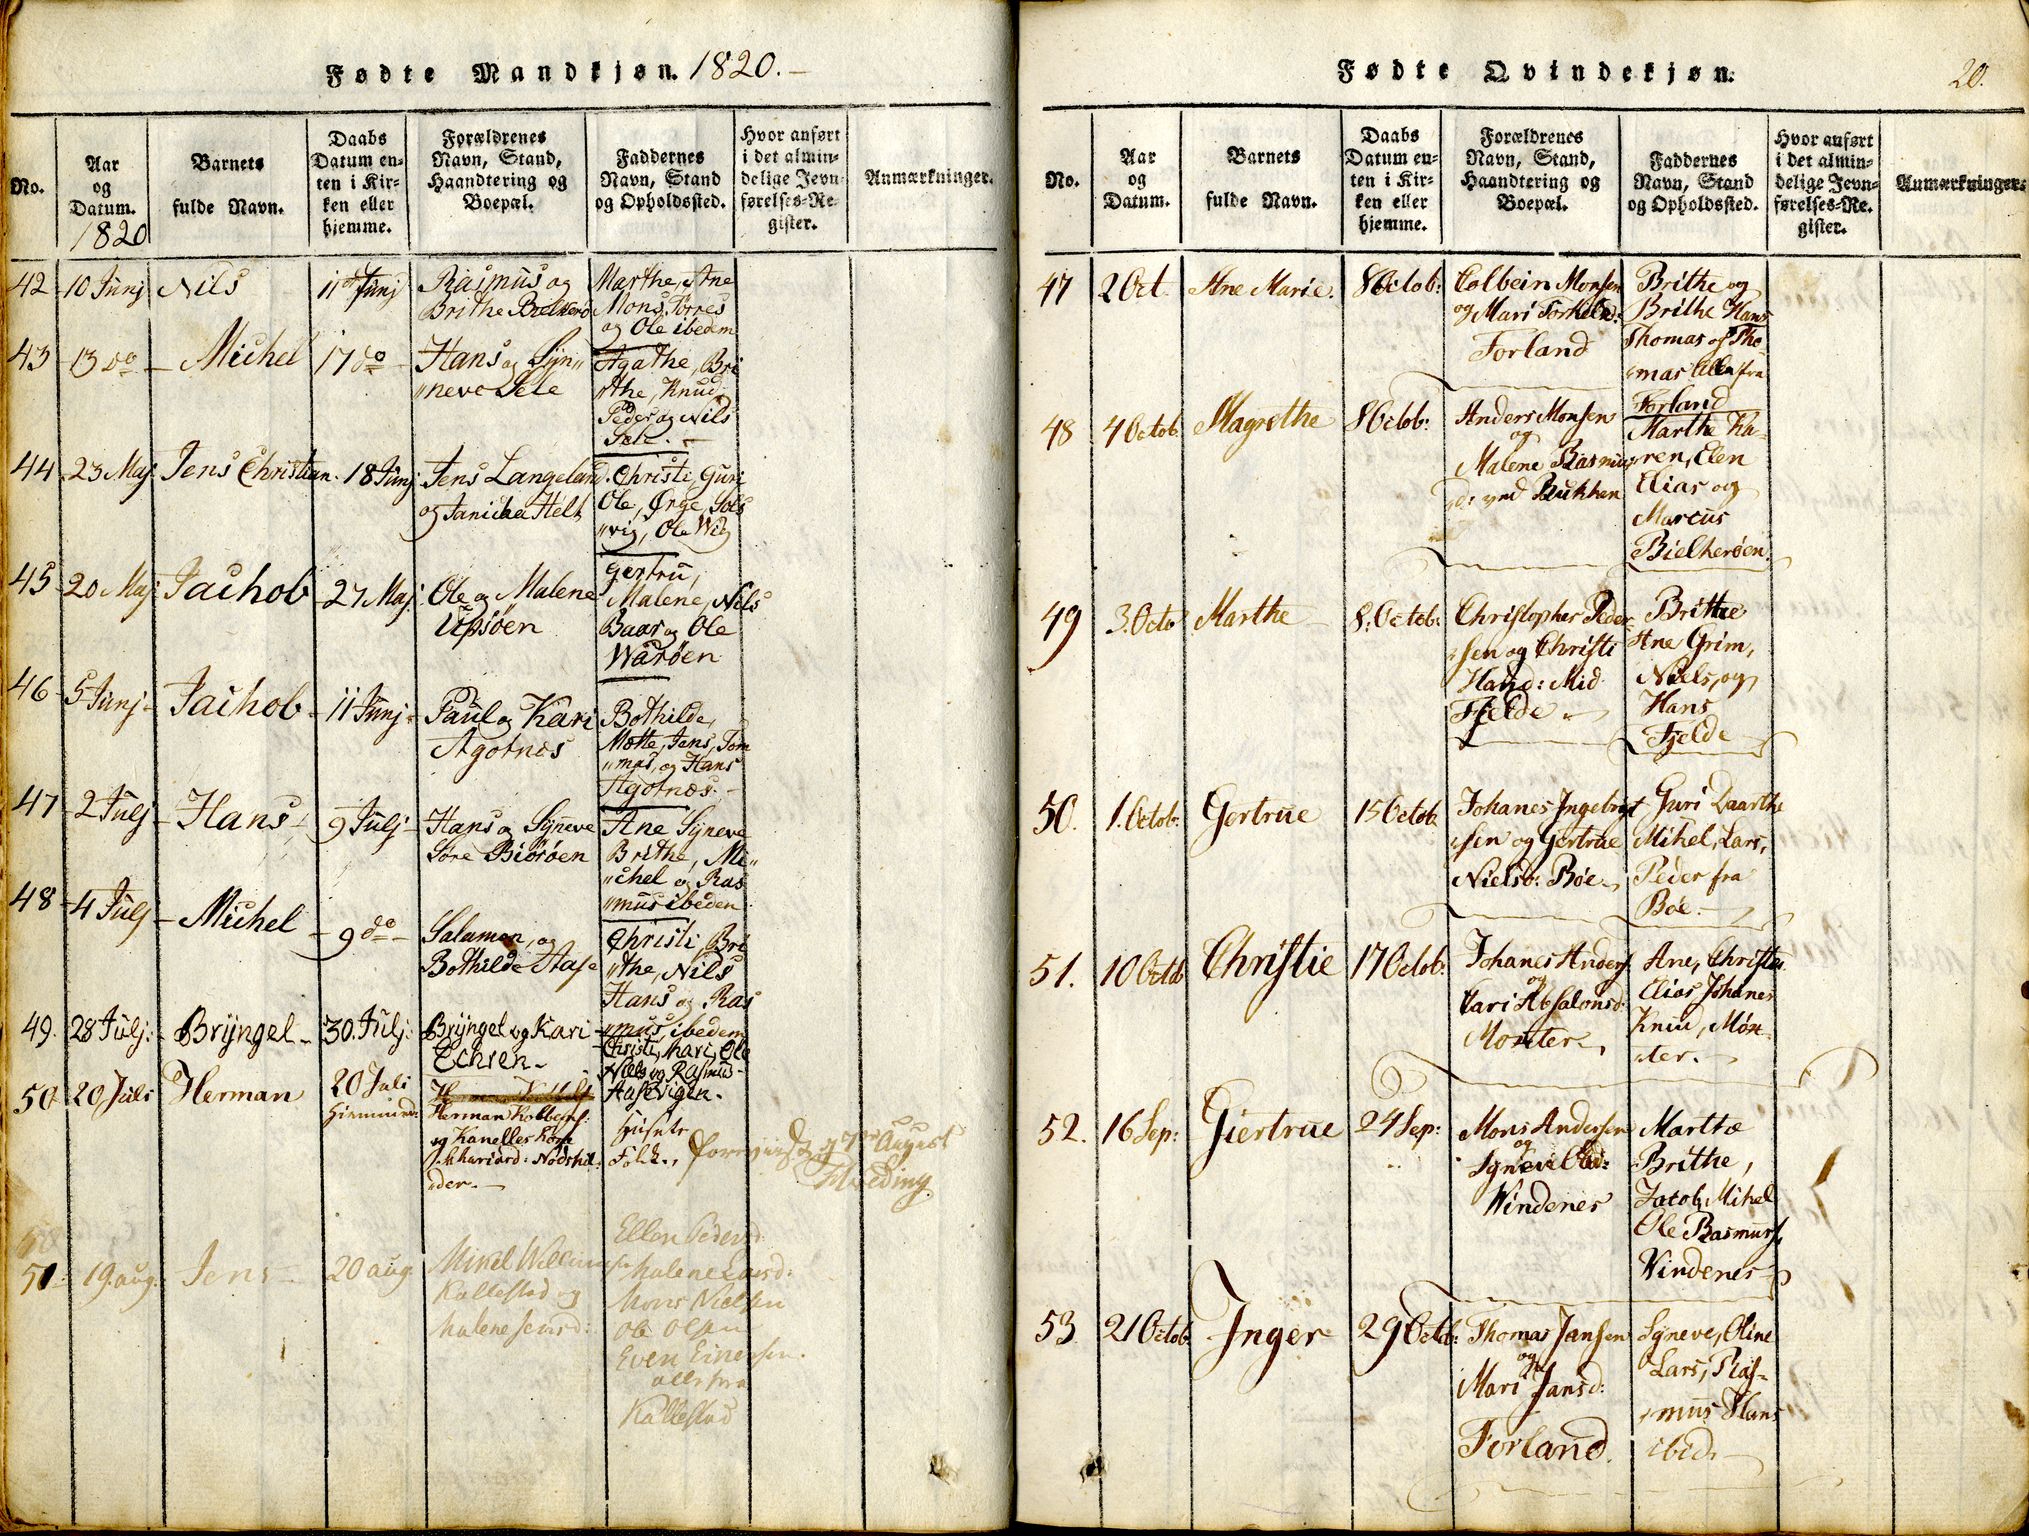 Fødte Mandkjøn. 1820.
No.
Aar
og
Datum.
1820
Barnets
fulde Navn.
Daabs
Datum en-
ten i Kir-
ken eller
hjemme.
Forældrenes
Navn, Stand,
Haandtering og
Boepæl.
Faddernes
Navn, Stand
og Opholdssted.
Hvor anført
i det almin-
delige Jevn-
førelses-Re-
gister.
Anmærkninger.
42 10 Junj Nils 11 Junj Rasmus og
Brithe Bielkerø
Marthe, Ane
Mons, Torres
og Ole ibedm
43 13 do Michel 17 do Hans og Syn„
„neve Sele
Agathe, Bri
„the, Knud
Peder og Nils
Sele.
44 23 Maj. Jens Christian. 18 Junj Jens Langeland
og Janicka Helt
Christi, Guri
Ole, Ørge, Sols
„vig, Ole Wig
45 20 Maj Jachob 27 Maj. Ole og Malene
Upsöen
Gertru,
Malene, Nils
Baar og Ole
Waröen
46 5 Junj Jachob 11 Junj Paul og Kari
Agotnæs
Bothilde,
Mette, Jens, Tom
„mas, og Hans
Agotnæs.
47 2 Julj Hans 9 Julj Hans og Syneve
Søre Biöröen
Ane Syneve
Brithe, Mi„
„chel og Ras
„mus ibeden
48 4 Julj Michel 9 do Salamon, og
Bothilde Aase
Christi, Bri
„the, Nils
Hans og Ras
„mus, ibedem
49. 28 Julj: Bryngel 30 Julj: Bryngel og Kari
Echren
Christi, Mari, Ole
Niels og Rasmus
Aasevigen.
50 20 Juli Herman 20 Juli
Herman Kolbens:
og Kanelles
„der.
Huusets
Folk.
August
51 19 aug. Jens 20 aug Mikel Wellums
Kallestad og
Malene Jensd:
Ellen Pedersd:
Malene Larsd:
Mons Nielsen
Ole Olsen
Even Einersen.
alle fra
Kallestad
Fødte Qvindekjøn.
20.
No.
Aar
og
Datum.
Barnets
fulde Navn.
Daabs
Datum en-
ten i Kir-
ken eller
hjemme.
Forældrenes
Navn, Stand,
Haandtering og
Boepæl.
Faddernes
Navn, Stand
og Opholdssted.
Hvor anført
i det almin-
delige Jevn-
førelses-Re-
gister.
Anmærkninger.
47 2 Oct Ane Marie. 8 Octob: Colbein Monsen
og Mari Torkelsd:
Forland
Brithe og
Brithe Hans
Thomas og Tho-
„mas alle fra
Forland
48 4 Octob Magrethe 8 Octob: Anders Monsen
og
Malene Rasmus
„d: ved Bukken
Marthe Ka-
ren, Elen
Elias og
Marcus
Bielkerøen.
49 3. Octo Marthe 8. Octob: Christopher Peder
„sen og Christi
Hansd: Mid
Fjelde
Brithe
Ane Grim,
Niels, og
Hans
Fjelde
50. 1. Octob: Gertrue 15 Octob Johanes Ingebrigt
„sen og Gertrue
Nielsd: Bøe
Guri Daarthe
Mikel, Lars,
Peder fra
Bøe.
51. 10 Octob Christie 17 Octob: Johanes Anders
og
Cari Absalonsd:
Monster
Ane, Christie
Elias Johanes
Knud, Møn
„ster.
52. 16 Sep: Giertrue 24 Sep: Mons Andersen
og
Syneve Olsd:
Windenes
Marthe
Brithe,
Jacob, Mikel
Ole Rasmus
Vindenes
53 21 Octob. Inger 29 Octob: Thomas Jansen
og
Mari Jansd:
Forland.
Syneve, Oline
Lars, Ras-
„mus Hans
ibid.